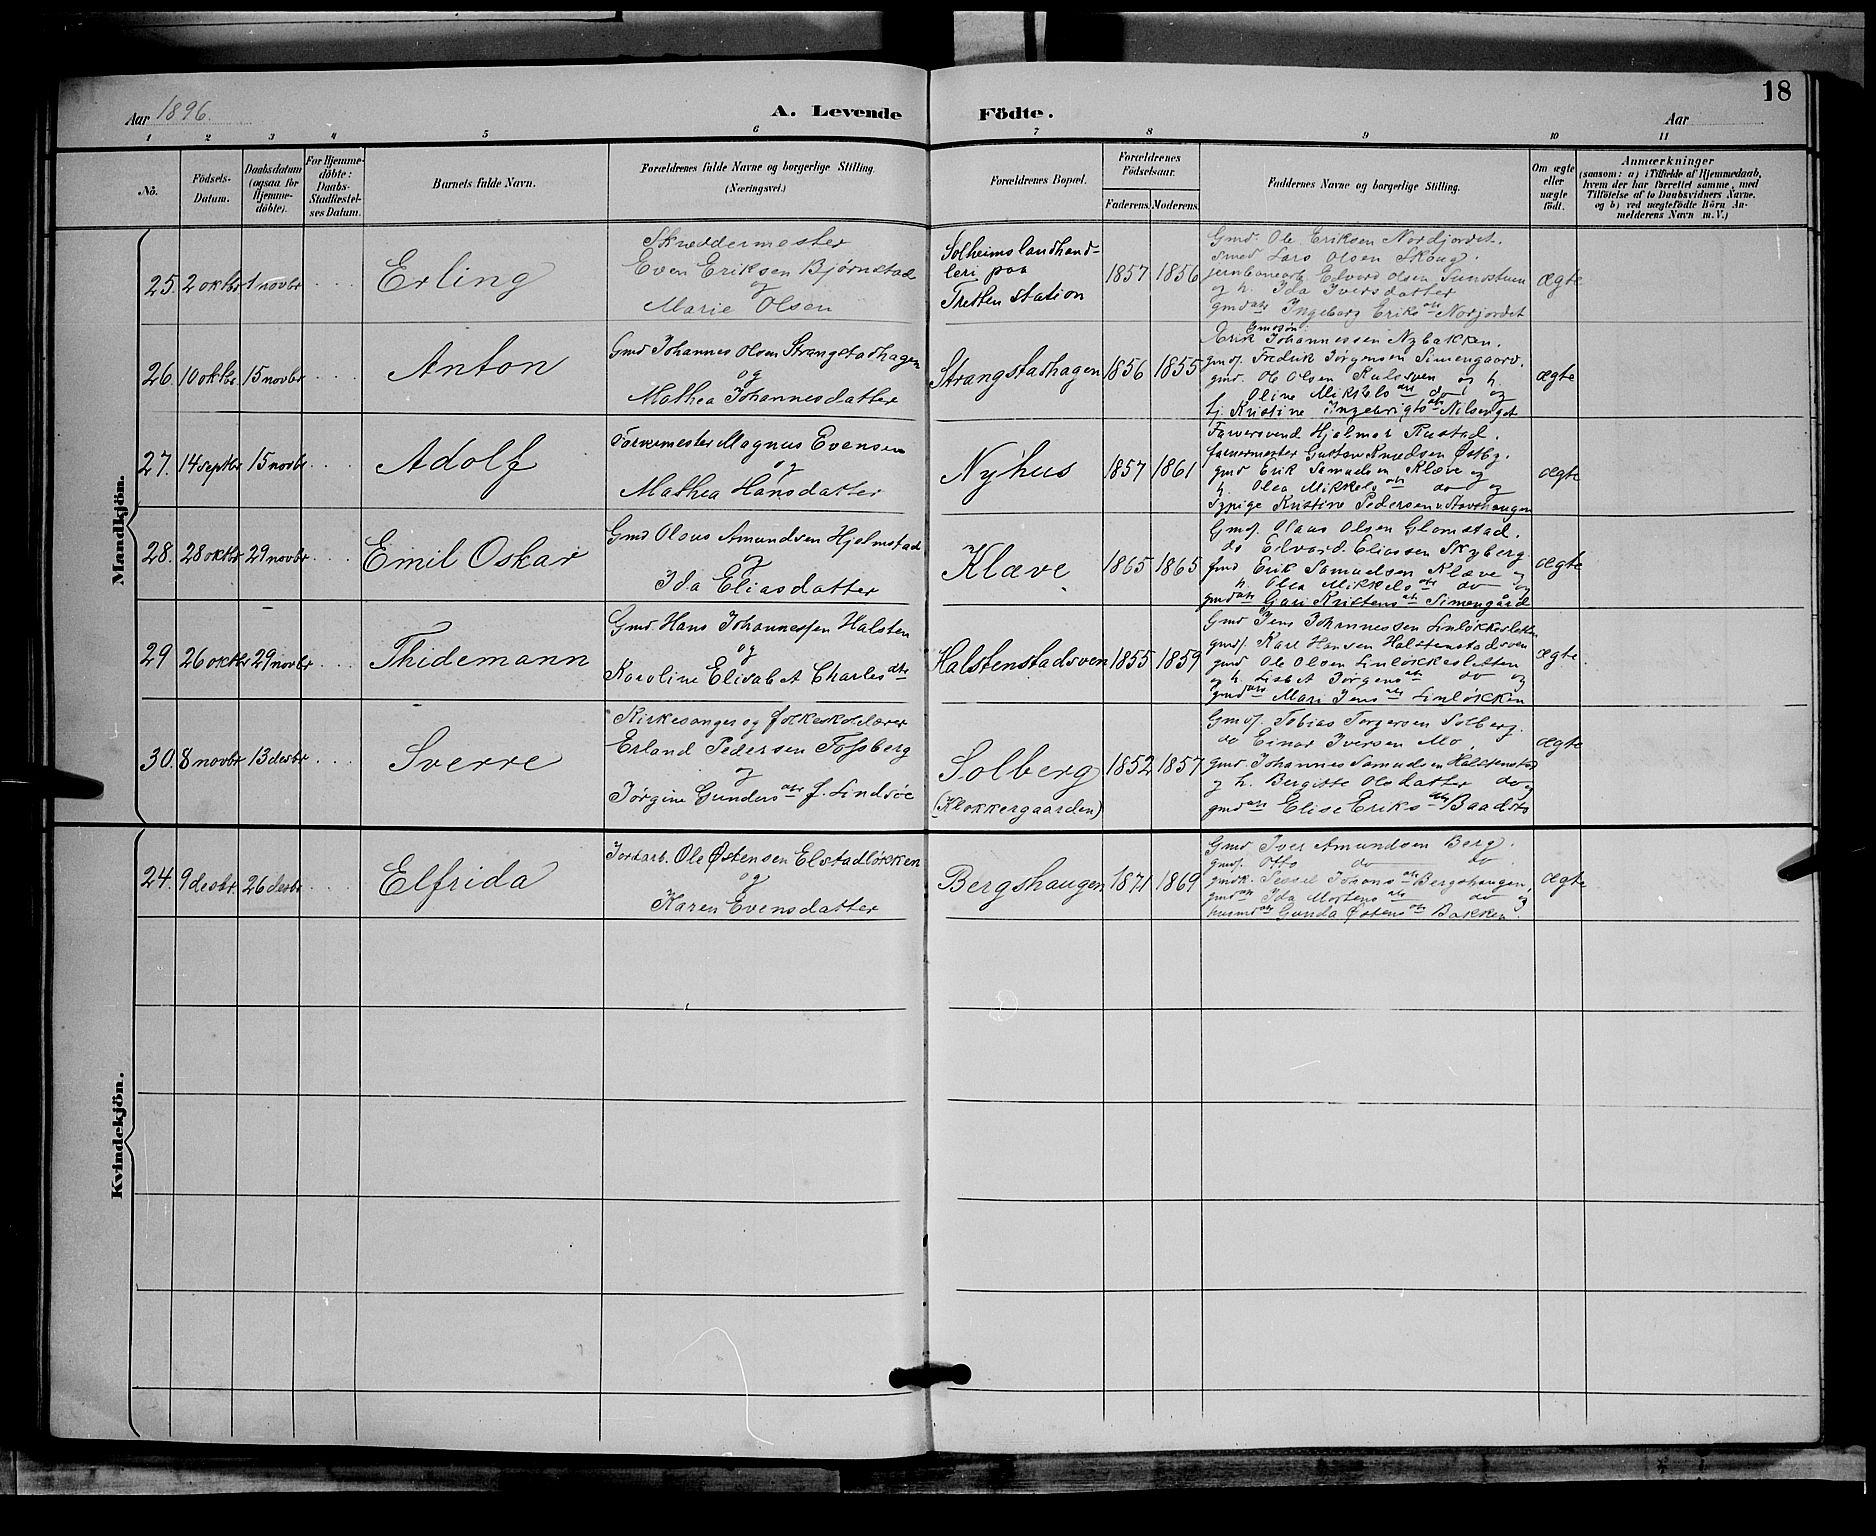 18
Aar 1896.
A. Levende Födte.
Aar
1 2 3 4 5 6 7 8 9 10 11
No.
Födsels-Datum.
Daabsdatum (ogsaa for Hjemme-döbte).
For Hjemme-döbte: Daabs-Stadfæstel-ses Datum.
Barnets fulde Navn.
Forældrenes fulde Navne og borgerlige Stilling. (Næringsvei.)
Forældrenes Bopæl.
Forældrenes Födselsaar.
Faderens. Moderens.
Faddernes Navne og borgerlige Stilling.
Om ægte eller uægte födt.
Anmærkninger
(saasom: a) i Tilfælde af Hjemmedaab,
hvem der har forrettet samme, med
Tilföielse af to Daabsvidners Navne,
og b) ved uægtefödte Börn An-
melderens Navn m. V.)
Mandkjön.
25. 2 oktbr 1 novbr
Erling
Skræddermester
Even Eriksen Bjørnstad
og
Marie Olsen
Solheims landhand-
leri paa
Tretten station
1857 1856
Gmd. Ole Eriksen Nordjordet.
smed Lars Olsen Skoug.
jernbanearb. Edvard Olsen Sundstuen
og h. Ida Iversdatter
gmd dtr Ingeborg Eriks dtr Norjordet
ægte
26. 10 oktbr. 15 novbr
Anton
Gmd Johannes Olsen Strangstadhagen
og
Mathea Johannesdatter
Strangstadhagen
1856 1855
Gmdsøn:
Erik Johannessen Nybakken.
gmds. Fredrik Jørgensen Simengaard.
gmd. Ole Olsen og h.
Oline Mikkels dtr do og
Kristine Ingebrigts dtr
ægte
27. 14 septbr 15 novbr
Adolf
Farvemester Magnus Evensen
og
Mathea Hansdatter
Nyhus
1857 1861
Farversvend Hjalmar Rustad.
farvermester Gustav Knudsen Østby.
gmd Erik Samuelsen Klæve og
h. Olea Mikkels dtr do og
sypige Kristine Pedersen Stavshaugen
ægte
28. 28 oktbr 29 novbr
Emil Oskar
Gmd Olaus Amundsen Hjelmstad
og
Ida Eliasdatter
Klæve
1865 1865
Gmds. Olaus Olsen Glomstad.
do Edvard Eliassen Skyberg.
gmd Erik Samuelsen Klæve og
h. Olea Mikkels dtr do og
gmd dtr Gjari Kristens dtr Simengård
ægte
29 26 oktbr 29 novbr
Thidemann
Gmd. Hans Johannessen Halsten
og
Karoline Elisabet Charles dtr
Halstenstadsven
1855 1859
Gmd Jens Johannessen Linløkkesletten
gmds. Karl Hansen Halstenstadsven
gmd Ole Olsen Linløkkesletten
og h. Lisbet Jørgens dtr do og
gmd dtr Mari Jens dtr Linløkken
ægte
30. 8 novbr 13 desbr
Sverre
Kirkesanger og folkeskolelærer
Erland Pedersen Fossberg
og
Jørgine Gunders dtr f. Lindsøe
Solberg
(Klokkergaarden)
1852 1857
Gmds. Tobias Torgersen Solberg.
do Einar Iversen Mo,
gmd. Johannes Samuelsen Halstenstad
og h. Bergitte Olsdatter do og
gmd dtr Elise Eriks dtr Baadstø
ægte
Kvindekjön.
24. 9 desbr. 26 desbr
Elfrida
Jordarb. Ole Østensen Elstadløkken
og
Karen Evensdatter
Bergshaugen
1871 1869
Gmd Iver Amundsen Berg.
gmds. Otto do do.
gmdk. Sessel Johans dtr Bergshaugen,
gmd dtr Ida Mortens dtr do og
husmd dtr Gunda Østens dtr Bakken
ægte